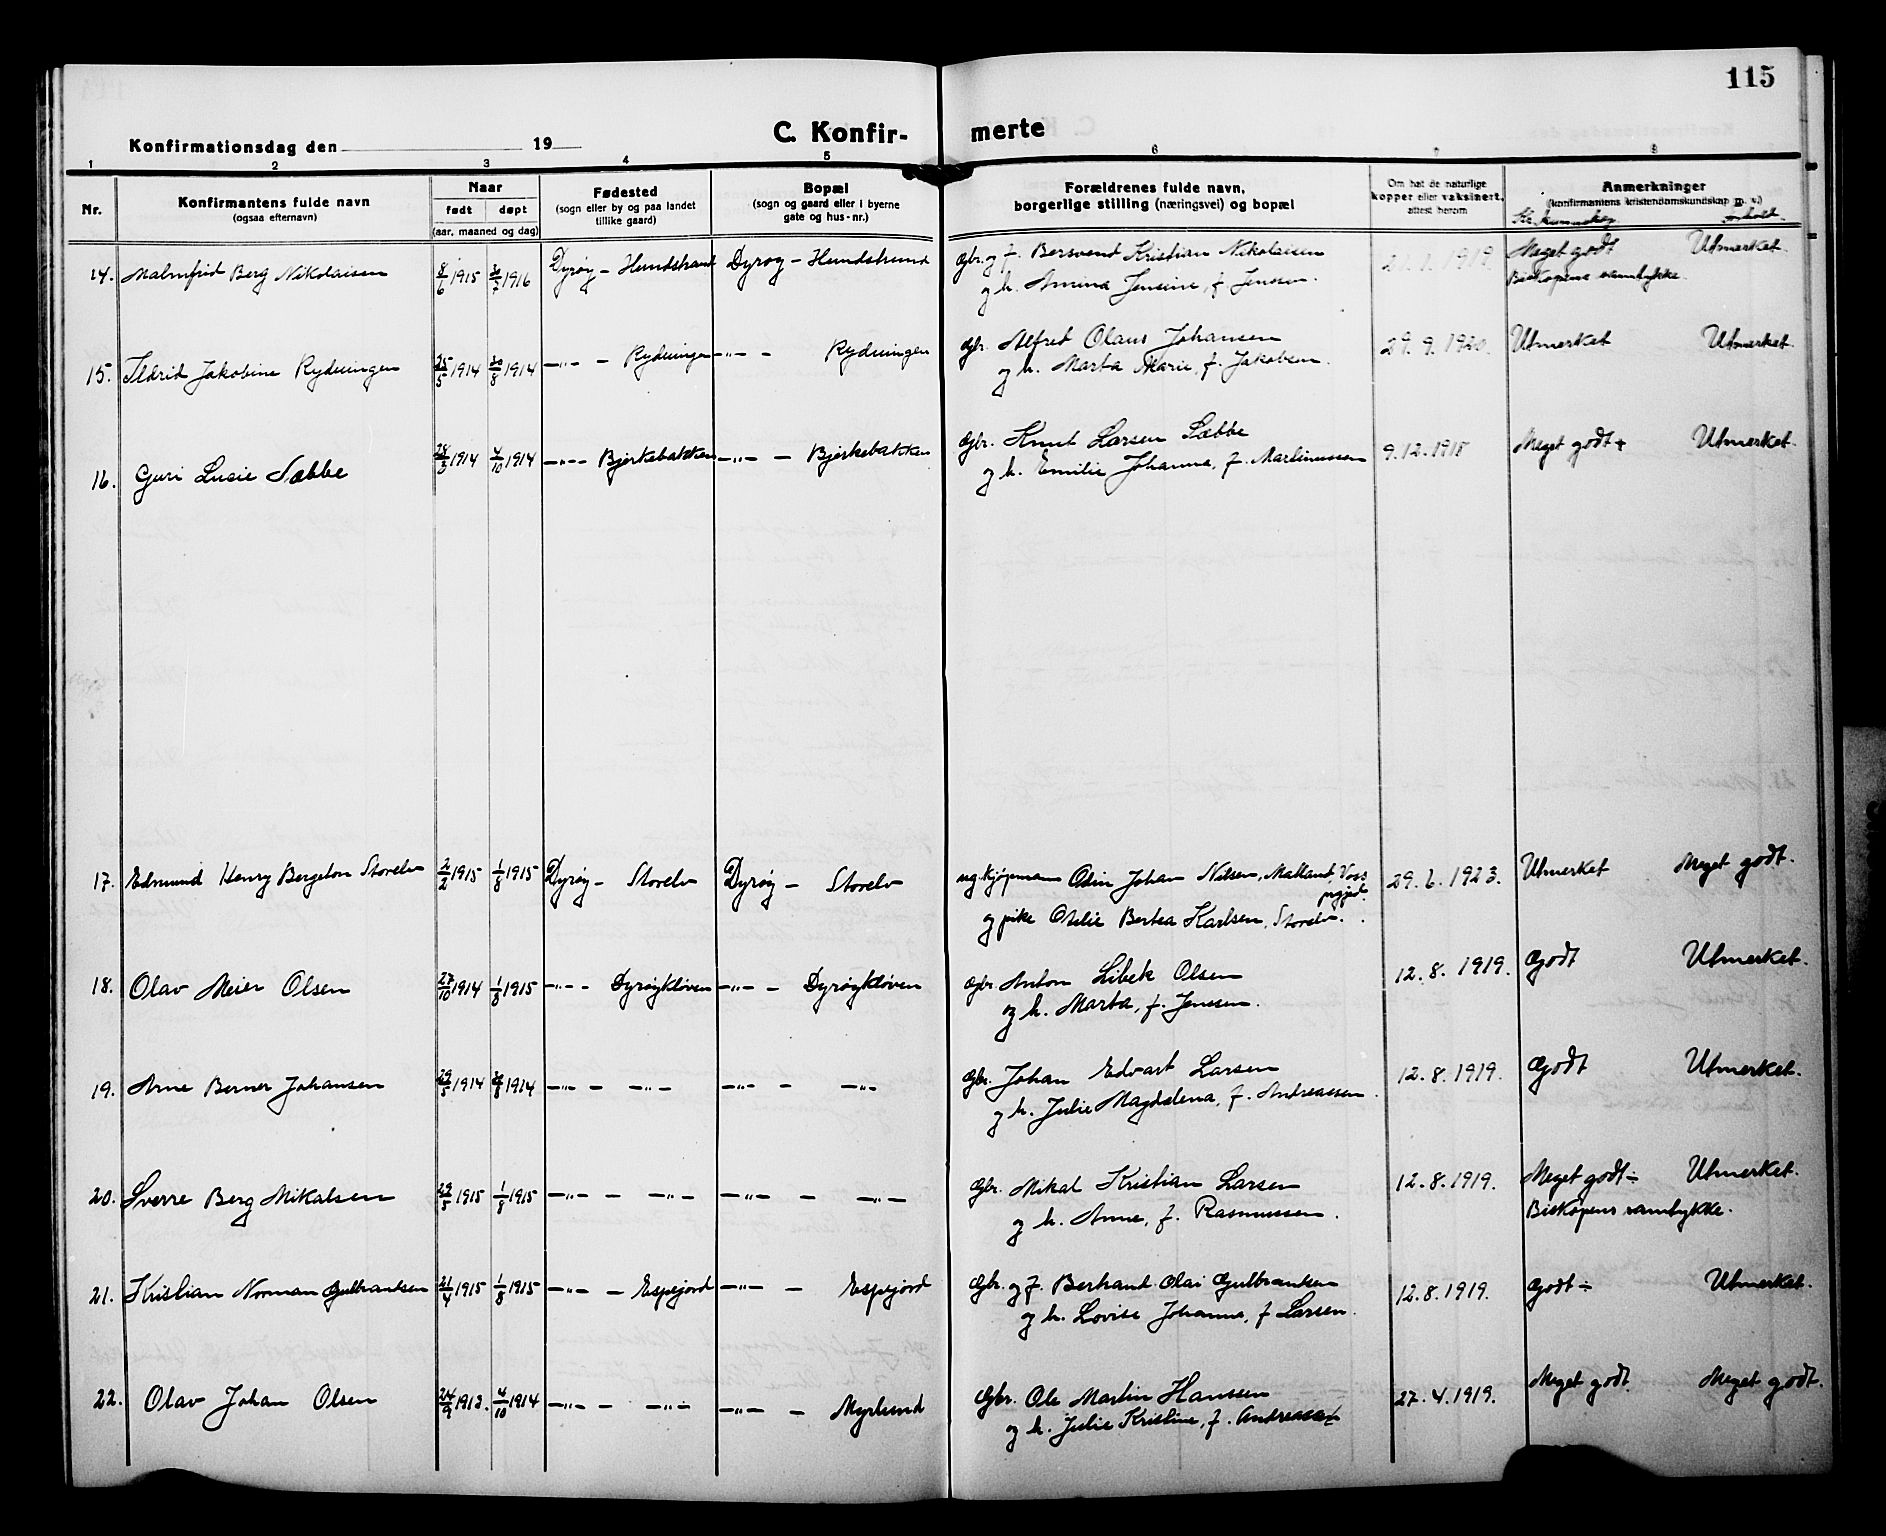 115
C. Konfir- merte
Konfirmationsdag den 19
1 2 3 4 5 6 7 8
Nr. Konfirmantens fulde navn (ogsaa efternavn) Naar født døpt (aar, maaned og dag) Fødested (sogn eller by og paa landet tillike gaard) Bopæl (sogn og gaard eller i byerne gate og hus-nr.) Forældrenes fulde navn, borgerlige stilling (næringsvei) og bopæl Om hat de naturlige kopper eller vaksinert, attest herom Anmerkninger (konfirmantens kristendomskundskap m. v.)
14. Malmfrid Berg Nikolaisen 8/6 1915 30/7 1916 Dyrøy - Hundstrand Dyrøy - Hundstrand Gbr. og f. Bersvend Kristian Nikolaisen 21.1.1919. Meget godt Utmerket
og h. Amina Jensine, f. Jenssen. Biskopens samtykke
15. Ildrid Jakobine Rydningen 25/5 1914 30/8 1914 -"- - Rydningen -"- - Rydningen Gbr. Alfret Olaus Johansen 29.9.1920. Utmerket Utmerket
og h. Marta Marie, f. Jakobsen.
16. Guri Lucie Sæbbe 28/3 1914 4/10 1914 -"- - Bjørkebakken -"- - Bjørkebakken Gbr. Knut Larsen Sæbbe 9.12.1918 Meget godt + Utmerket
og h. Emilie Johanna, f. Martinussen
17. Edmund Henry Bergeton Storelv 2/2 1915 1/8 1915 Dyrøy - Storelv Dyrøy - Storelv ug. kjøpmann Odin Johan Nilsen, Matland, Voss 29.6.1923. Utmerket Meget godt.
prgjeld.
og pike Otelie Bertea Karlsen, Storelv.
18. Olav Meier Olsen 27/10 1914 1/8 1915 -"- - Dyrøykløven -"- - Dyrøykløven Gbr. Anton Libek Olsen 12.8.1919. Godt Utmerket.
og h. Marta, f. Jenssen.
19. Arne Berner Johansen 29/5 1914 30/8 1914 -"- - -"- -"- - -"- Gbr. Johan Edvart Larsen 12.8.1919. Godt Utmerket.
og h. Julie Magdalena, f. Andreassen.
20. Sverre Berg Mikalsen 29/5 1915 1/8 1915 -"- - -"- -"- - -"- Gbr. Mikal Kristian Larsen 12.8.1919. Meget godt ÷ Utmerket.
og h. Anne, f. Rasmussen. Biskopens samtykke.
21. Kristian Norman Gulbrantsen 21/4 1915 1/8 1915 -"- - Espejord -"- - Espejord Gbr. og f. Bertrand Olai Gulbrantsen 12.8.1919. Godt ÷ Utmerket.
og h. Lovise Johanna, f. Larsen.
22. Olav Johan Olsen 24/9 1913. 4/10 1914 -"- - -"- -"- - Myrlund Gbr. Ole Martin Hanssen 27.4.1919. Meget godt. Meget godt.
og h. Julie Kristine, f.